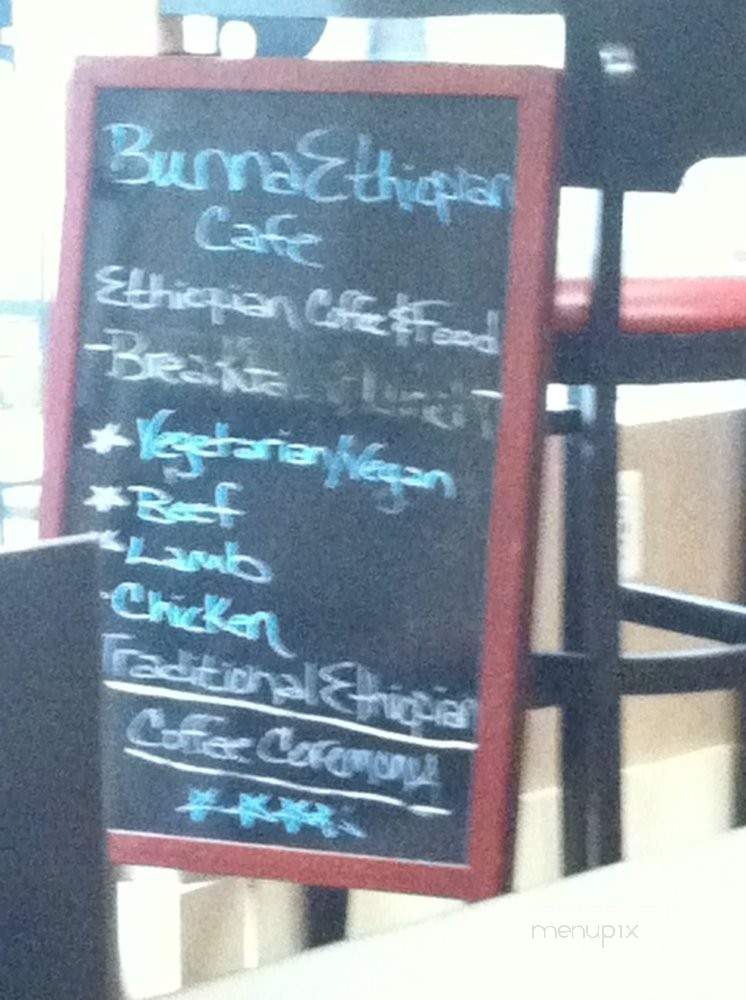 Bunna Ethiopian
Cafe
Ethiopian Coffee & Food
- Breakfa Lunch
* Vegetarian/Vegan
* Beef
* Lamb
· Chicken
Traditional Ethiopian
Coffee Ceremony
menupix